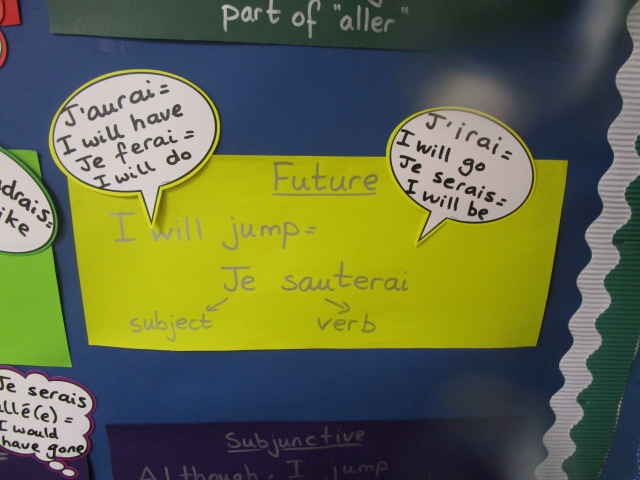 part of "aller"
J'aurai=
I will have
Je ferai=
I will do
J'irai=
I will go
Je serais=
I will be
Future
I will jump=
Je sauterai
subject
verb
Je serais
allé(e) =
I would
have gone
Subjunctive
Although, I jump